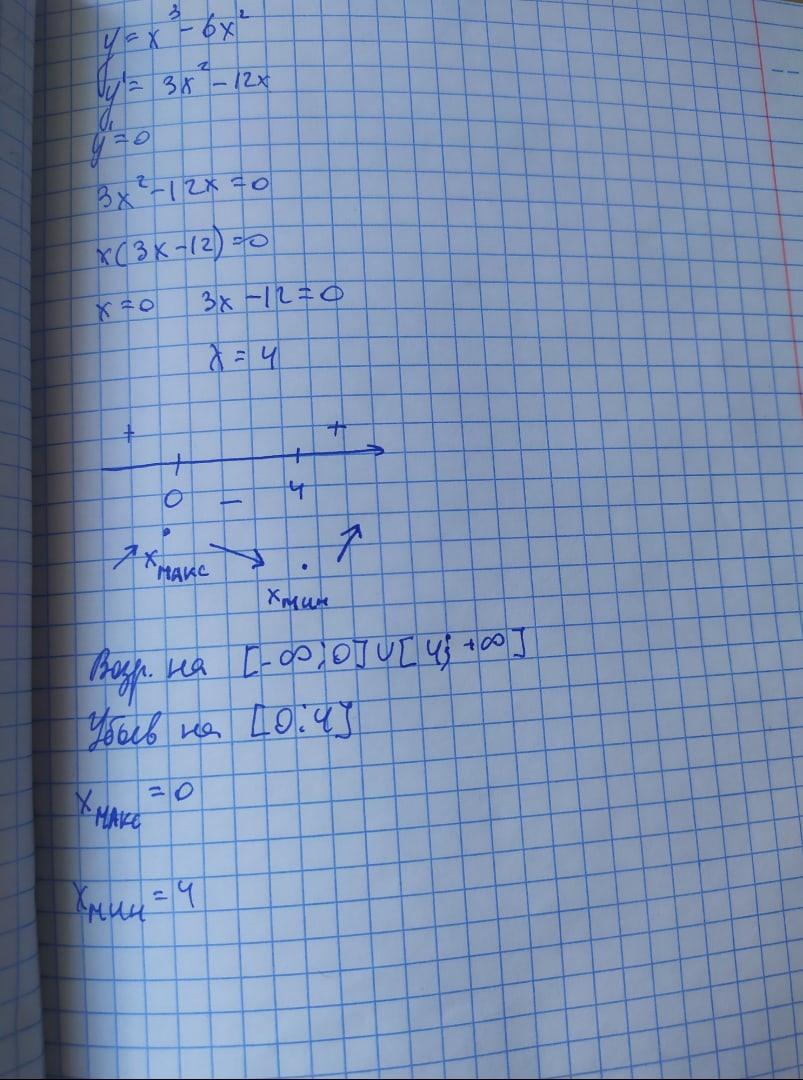 y = x³ - 6x²
y' = 3x² - 12x
y' = 0
3x² - 12x = 0
x(3x - 12) = 0
x = 0 3x - 12 = 0
x = 4
+ +
0 - 4
xмакс
xмин
Возр. на [-∞; 0] ∪ [4; +∞]
Убыв на [0; 4]
xмакс = 0
xмин = 4